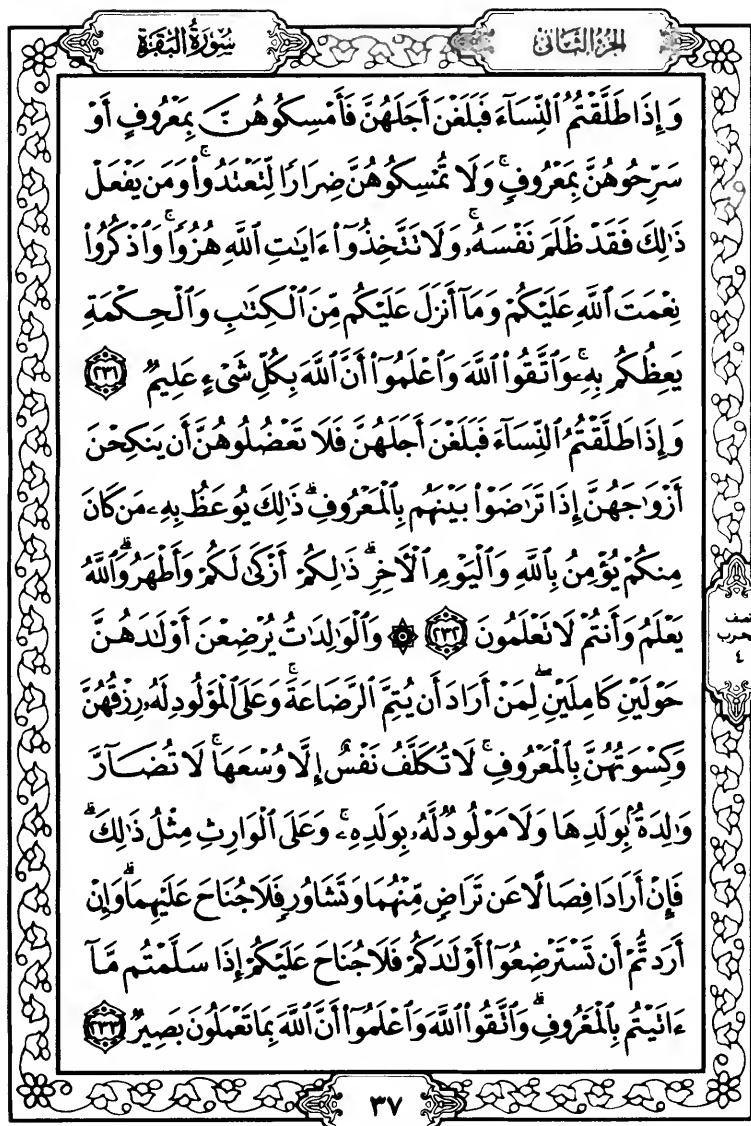 الجزء الثاني
سورة البقرة
وَإِذَا طَلَّقْتُمُ ٱلنِّسَآءَ فَبَلَغْنَ أَجَلَهُنَّ فَأَمْسِكُوهُنَّ بِمَعْرُوفٍ أَوْ
سَرِّحُوهُنَّ بِمَعْرُوفٍۚ وَلَا تُمْسِكُوهُنَّ ضِرَارًا لِّتَعْتَدُوا۟ۚ وَمَن يَفْعَلْ
ذَٰلِكَ فَقَدْ ظَلَمَ نَفْسَهُۥۚ وَلَا تَتَّخِذُوٓا۟ ءَايَٰتِ ٱللَّهِ هُزُوًاۚ وَٱذْكُرُوا۟
نِعْمَتَ ٱللَّهِ عَلَيْكُمْ وَمَآ أَنزَلَ عَلَيْكُم مِّنَ ٱلْكِتَٰبِ وَٱلْحِكْمَةِ
يَعِظُكُم بِهِۦۚ وَٱتَّقُوا۟ ٱللَّهَ وَٱعْلَمُوٓا۟ أَنَّ ٱللَّهَ بِكُلِّ شَىْءٍ عَلِيمٌ ٢٣١
وَإِذَا طَلَّقْتُمُ ٱلنِّسَآءَ فَبَلَغْنَ أَجَلَهُنَّ فَلَا تَعْضُلُوهُنَّ أَن يَنكِحْنَ
أَزْوَٰجَهُنَّ إِذَا تَرَٰضَوْا۟ بَيْنَهُم بِٱلْمَعْرُوفِۗ ذَٰلِكَ يُوعَظُ بِهِۦ مَن كَانَ
مِنكُمْ يُؤْمِنُ بِٱللَّهِ وَٱلْيَوْمِ ٱلْءَاخِرِۗ ذَٰلِكُمْ أَزْكَىٰ لَكُمْ وَأَطْهَرُۗ وَٱللَّهُ
يَعْلَمُ وَأَنتُمْ لَا تَعْلَمُونَ ٢٣٢ ۞ وَٱلْوَٰلِدَٰتُ يُرْضِعْنَ أَوْلَٰدَهُنَّ
حَوْلَيْنِ كَامِلَيْنِۖ لِمَنْ أَرَادَ أَن يُتِمَّ ٱلرَّضَاعَةَۚ وَعَلَى ٱلْمَوْلُودِ لَهُۥ رِزْقُهُنَّ
وَكِسْوَتُهُنَّ بِٱلْمَعْرُوفِۚ لَا تُكَلَّفُ نَفْسٌ إِلَّا وُسْعَهَاۚ لَا تُضَآرَّ
وَٰلِدَةٌۢ بِوَلَدِهَا وَلَا مَوْلُودٌ لَّهُۥ بِوَلَدِهِۦۚ وَعَلَى ٱلْوَارِثِ مِثْلُ ذَٰلِكَۗ
فَإِنْ أَرَادَا فِصَالًا عَن تَرَاضٍ مِّنْهُمَا وَتَشَاوُرٍ فَلَا جُنَاحَ عَلَيْهِمَاۗ وَإِنْ
أَرَدتُّمْ أَن تَسْتَرْضِعُوٓا۟ أَوْلَٰدَكُمْ فَلَا جُنَاحَ عَلَيْكُمْ إِذَا سَلَّمْتُم مَّآ
ءَاتَيْتُم بِٱلْمَعْرُوفِۗ وَٱتَّقُوا۟ ٱللَّهَ وَٱعْلَمُوٓا۟ أَنَّ ٱللَّهَ بِمَا تَعْمَلُونَ بَصِيرٌ ٢٣٣
٤
٣٧